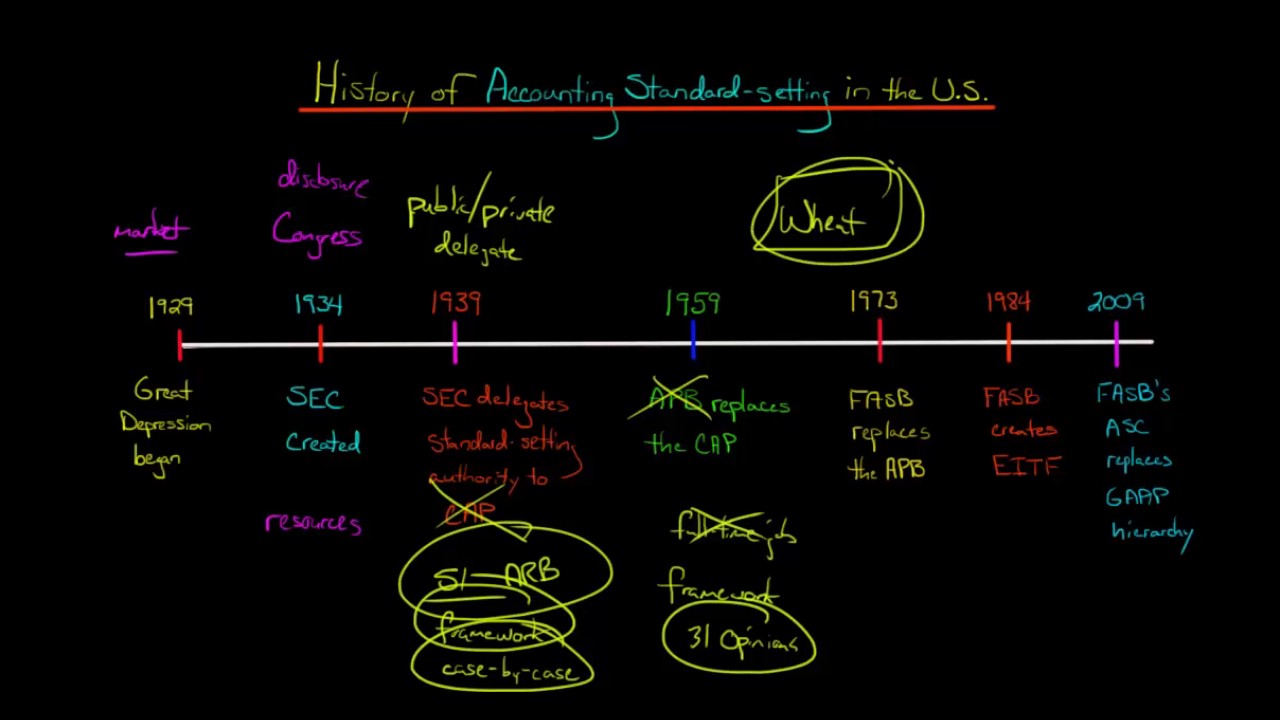 History of Accounting Standard-setting in the U.S.
market
disclosure
Congress
public/private
delegate
Wheat
1929
1934
1939
1959
1973
1984
2009
Great
Depression
began
SEC
Created
resources
SEC delegates
Standard-setting
authority to
CAP
51 ARB
framework
case-by-case
APB replaces
the CAP
full-time job
framework
31 Opinions
FASB
replaces
the APB
FASB
creates
EITF
FASB's
ASC
replaces
GAAP
hierarchy